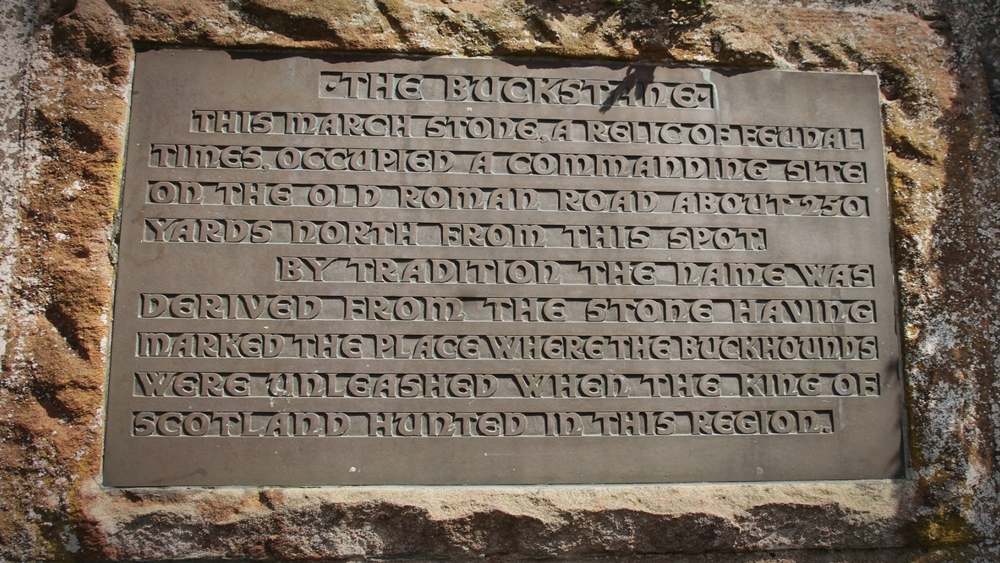 ·THE BUCKSTANE·
THIS MARCH STONE, A RELIC OF FEUDAL
TIMES, OCCUPIED A COMMANDING SITE
ON THE OLD ROMAN ROAD ABOUT 250
YARDS NORTH FROM THIS SPOT.
BY TRADITION THE NAME WAS
DERIVED FROM THE STONE HAVING
MARKED THE PLACE WHERE THE BUCKHOUNDS
WERE UNLEASHED WHEN THE KING OF
SCOTLAND HUNTED IN THIS REGION.